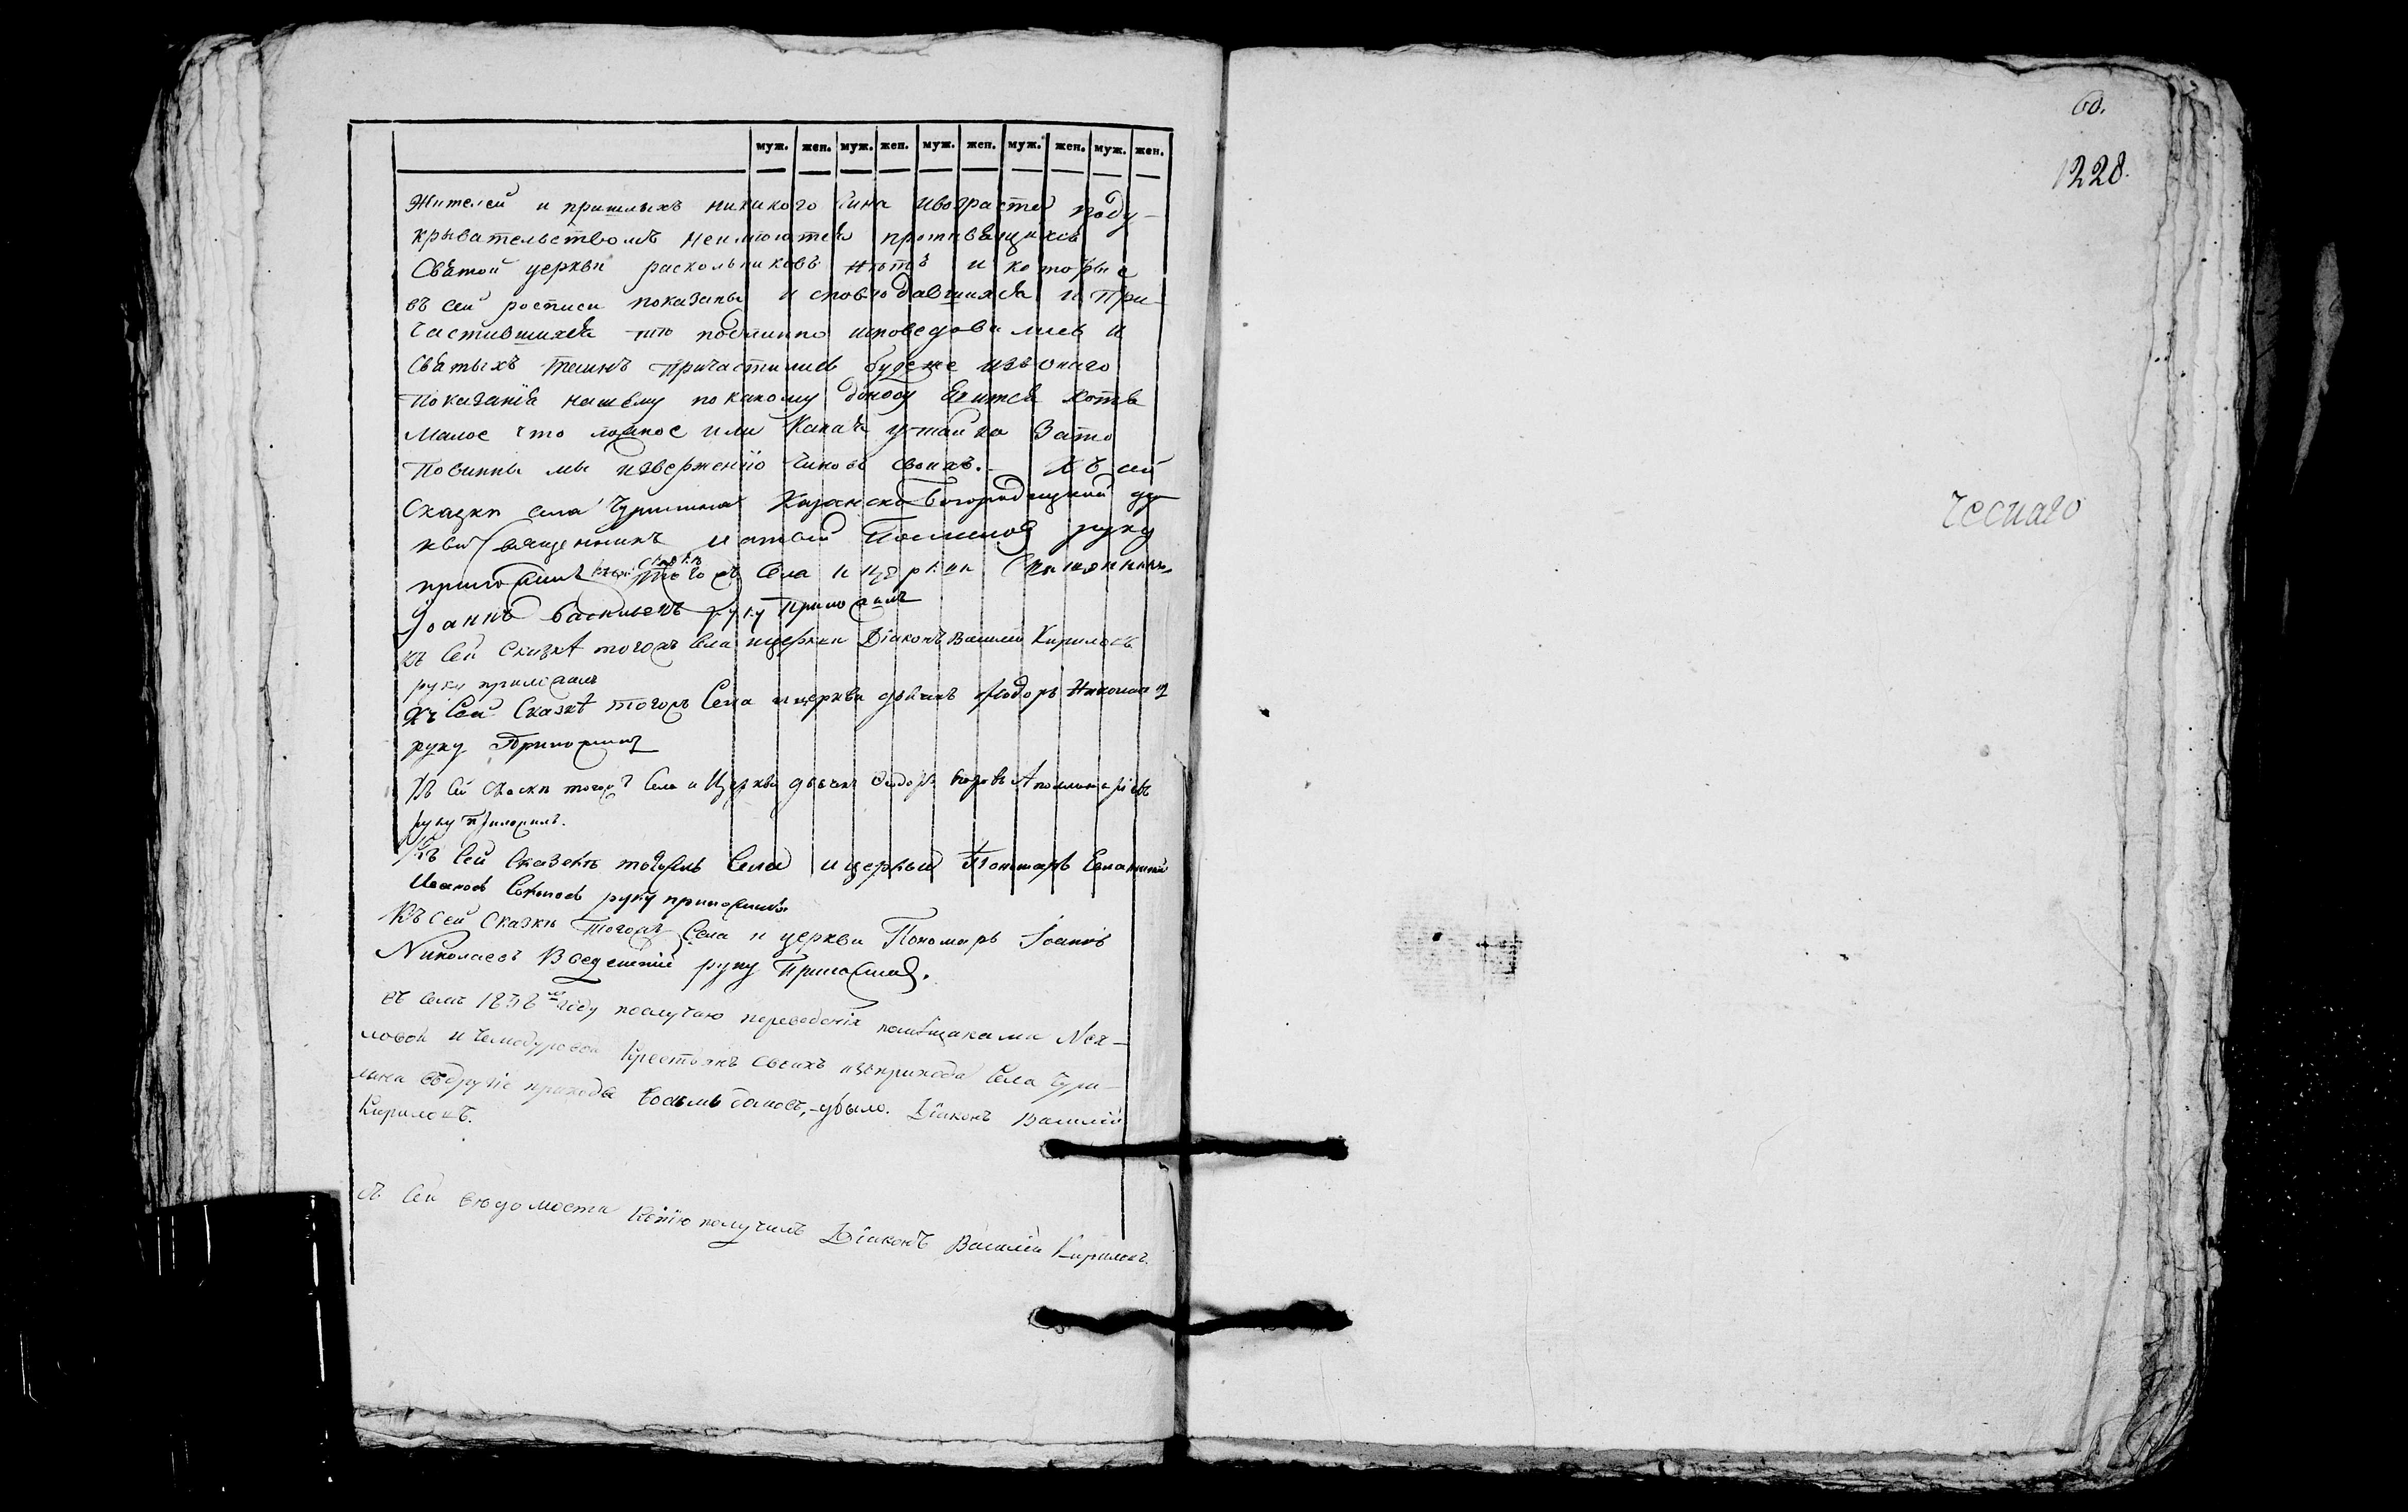 муж. жен. муж. жен. муж. жен. муж. жен. муж. жен.
Жителей и пришлыхъ никакого чина ивозраста подъ-
крывательствомъ неимѣютса противащихсѧ
Свѧтой церкви раскольниковъ нѣтъ и которые
въ сей росписи показаны исповѣдавшихсѧ и При-
частившихсѧ тѣ подлинно исповедовались и
Свѧтыхъ таинъ причастились будеже изъ онаго
показанїѧ нашему покакому доводу ѧвитсѧ хотѧ
малое что ложное или какаѧ утайка зато
Повинны мы извержению чиновъ своихъ. Къ сей
Сказки села Чурилина Казанско Богородицкой цер
кви Священникъ руку
приложилъ тогожъ Села и церкви Священникъ
Іоаннъ Васильевъ руку приложилъ
Къ Сей Сказкѣ тогожъ Села ицеркви Дїаконъ Василїй Кириловъ
руку приложилъ
Къ Сей Сказкѣ тогожъ Села ицеркви дьячекъ Ѳедоръ
руку Приложилъ
Къ Сей Скаски тогожъ Села и Церкви дьячекъ
руку приложилъ.
Къ Сей Сказкѣ тогожъ Села ицеркви Пономарь
Ивановъ руку приложилъ
Къ Сей Сказки Тогожъ Села и церкви Пономарь Іоаннъ
Николаевъ Введенский руку Приложилъ.
въ семъ 1838мъ году послучаю переведенїя помѣщиками
ловой и Чемодуровой Крестьянъ своихъ изъприхода Села Чури-
лина въдругїе приходы восемь домовъ, убыло. Дїаконъ Василїй
Кириловъ.
Сей вѣдомости Копїю получилъ Дїаконъ Василїй Кириловъ.
60.
1228.
чеснаго